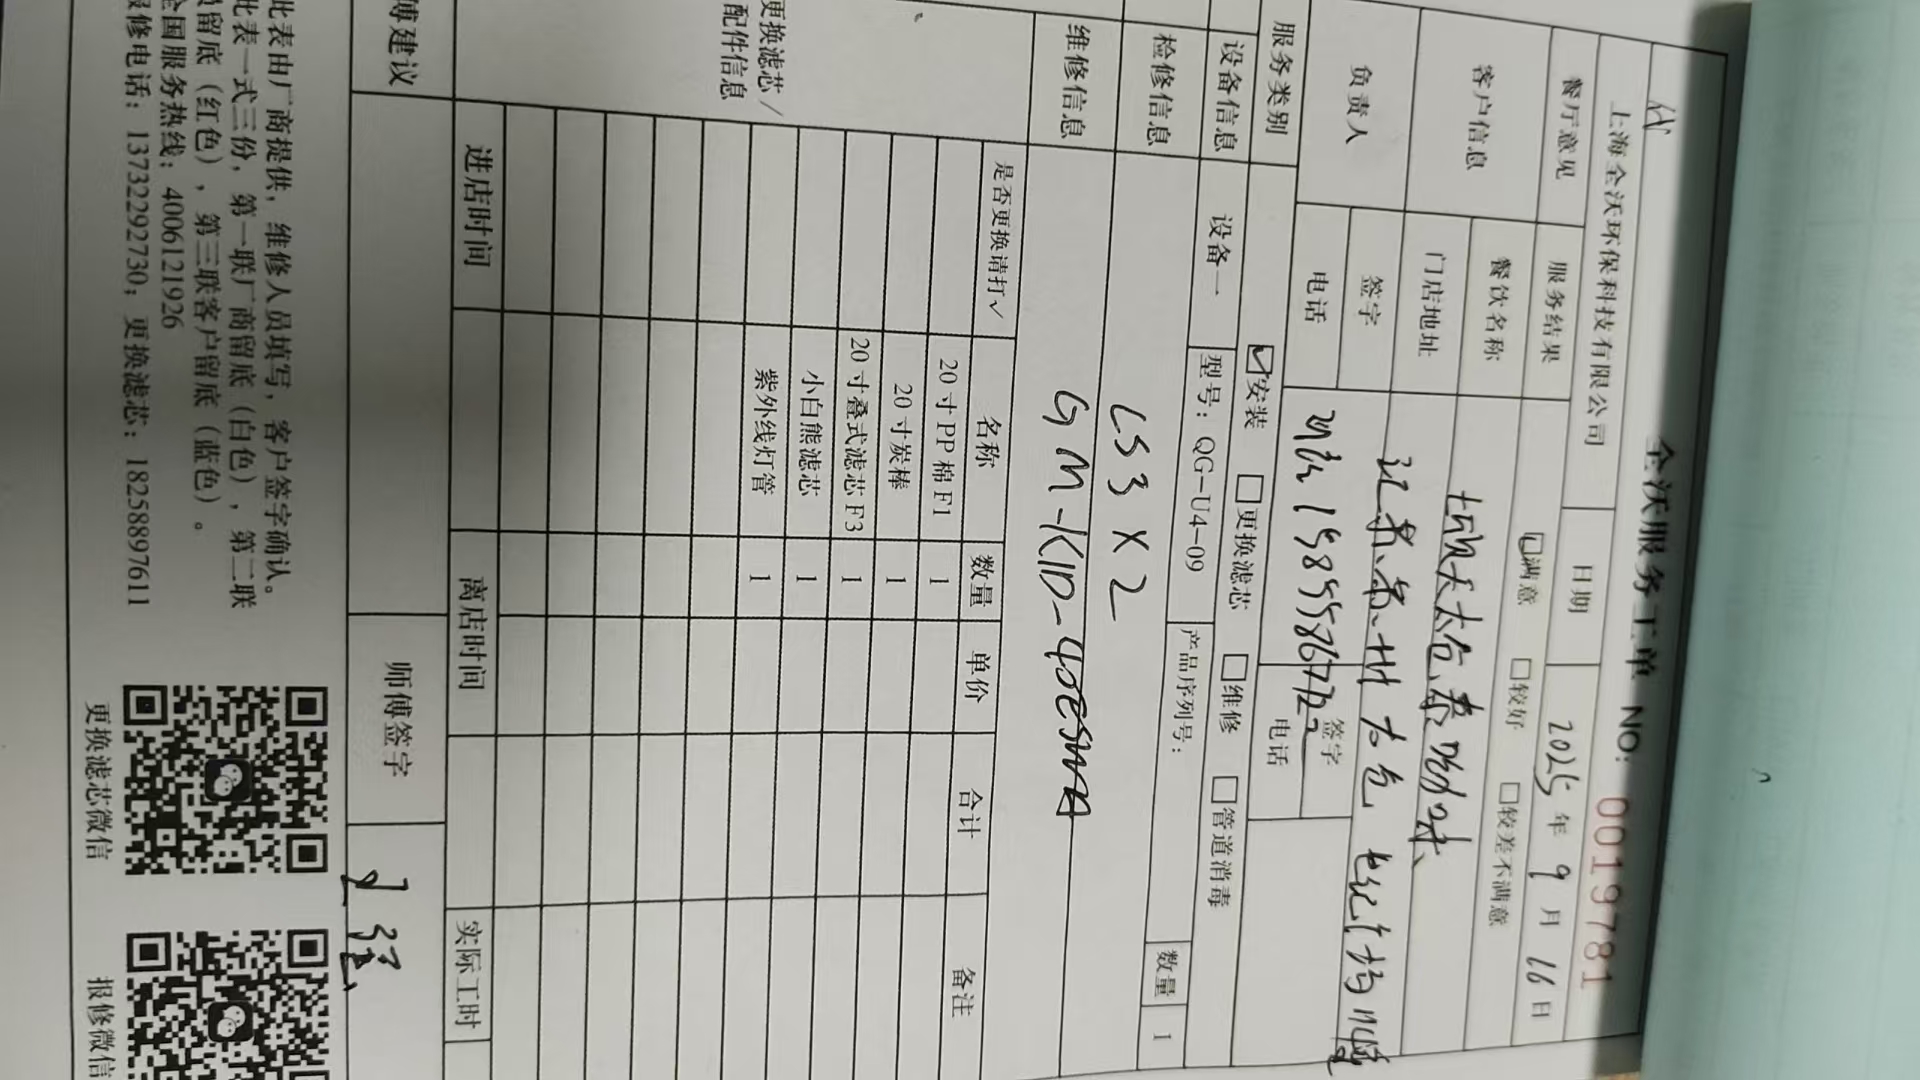 全沃服务工单 NO: 00197781
上海全沃环保科技有限公司 日期 2025年9月16日
餐厅意见 服务结果 满意 □较好 □较差不满意
客户信息 餐饮名称
门店地址
负责人 签字 签字
电话 15855867722 电话
服务类别 ☑安装 □更换滤芯 □维修 □管道消毒
设备信息 设备一 型号：QG-U4-09 产品序列号： 数量 1
检修信息 LS3 X 2
维修信息 GM-K10-40
更换滤芯/
配件信息
是否更换请打√ 名称 数量 单价 合计 备注
20寸PP棉F1 1
20寸炭棒 1
20寸叠式滤芯F3 1
小白熊滤芯 1
紫外线灯管 1
进店时间 离店时间 实际工时
傅建议 师傅签字
此表由厂商提供，维修人员填写，客户签字确认。
此表一式三份，第一联厂商留底（白色），第二联
员留底（红色），第三联客户留底（蓝色）。
全国服务热线：4006121926
报修电话：13732292730；更换滤芯：18258897611
更换滤芯微信 报修微信